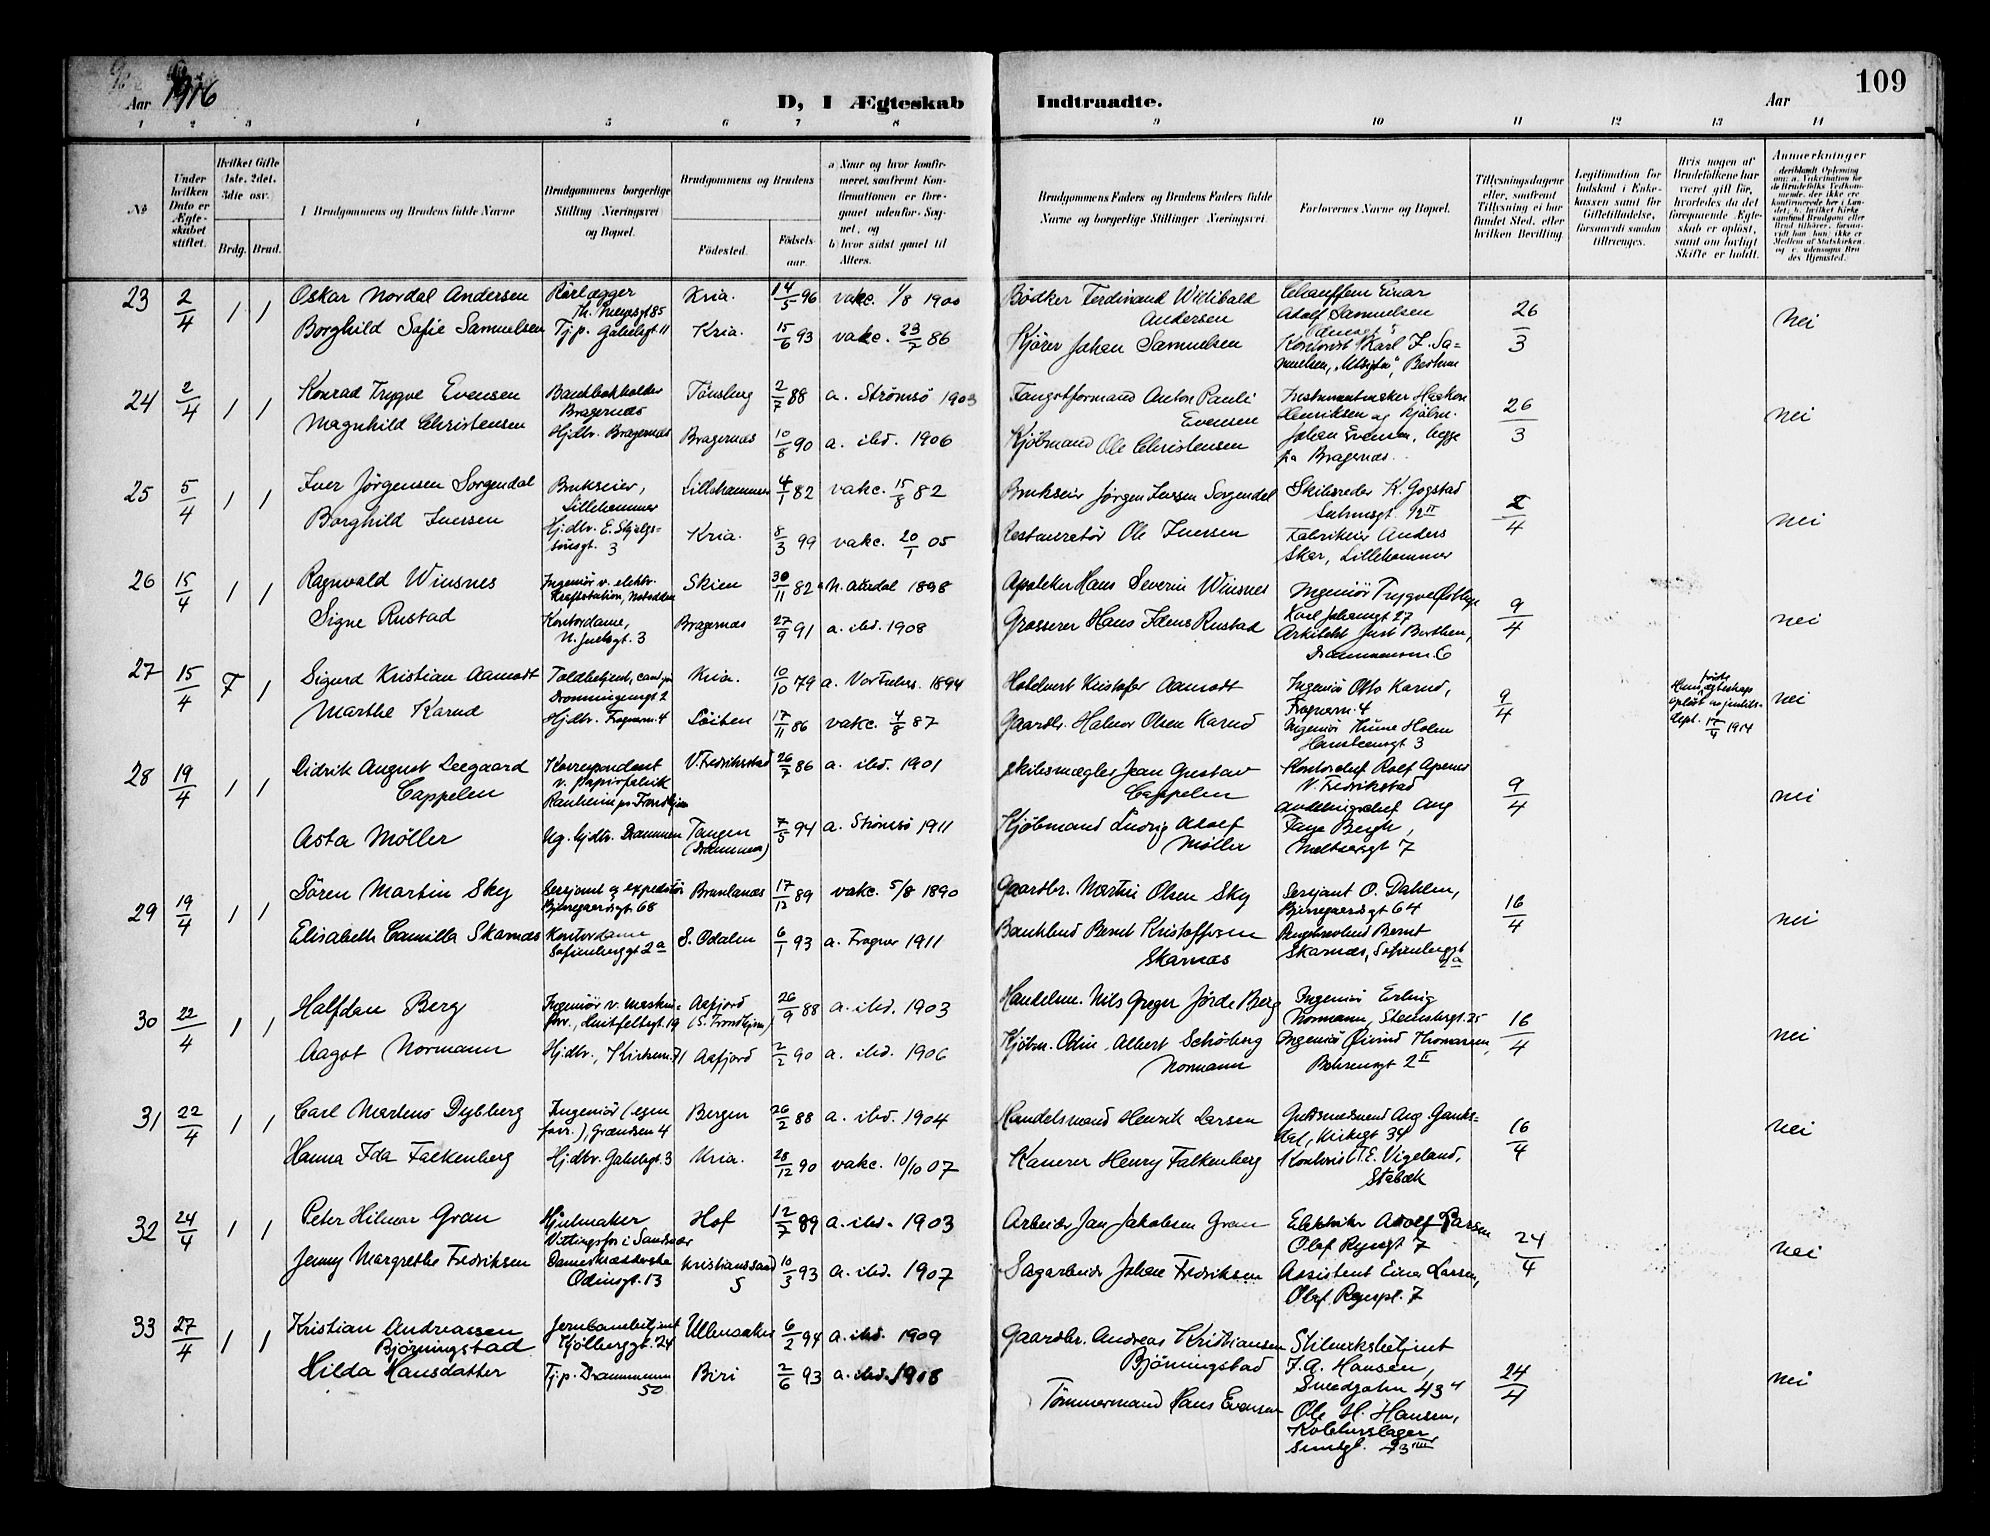 109
Aar 1916
D, I Ægteskab Indtraadte.
Aar
1 2 3 4 5 6 7 8 9 10 11 12 13 14
No
Under hvilken Dato er Ægteskabet stiftet.
Hvilket Gifte (1ste, 2det, 3die osv.)
Brdg. Brud.
I Brudgommens og Brudens fulde Navne
Brudgommens borgerlige Stilling (Næringsvei) og Bopæl.
Brudgommens og Brudens
Födested. Födselsaar.
a Naar og hvor konfirmeret, saafremt Konfirmationen er foregaaet udenfor Sognet, og
b) hvor sidst gaaet til Alters.
Brudgommens Faders og Brudens Faders fulde Navne og borgerlige Stillinger (Næringsvei).
Forlovernes Navne og Bopæl.
Tillysningsdagene eller, saafremt Tillysning ei har fundet Sted, efter hvilken Bevilling.
Legitimation for Indskud i Enkekassen samt for Giftetilladelse, forsaavidt saadan tiltrænges.
Hvis nogen af Brudefolkene har været gift før, hvorledes da det foregaaende Ægteskab er oplöst, samt om lovligt Skifte er holdt.
Anmerkninger
23 2/4 1 1 Oskar Nordal Andersen Rørlægger Th. Meyersgt 85 Kria. 14/5 96 vakc. 1/8 1900 Bödker Ferdinand Willibald Andersen Chauffeur Einar Adolf Samuelsen 26/3 Nei
Borghild Sofie Samuelsen Tj.p. Gabelsgt 11 Kria. 15/6 93 vakc. 23/7 86 Kjörer Johan Samuelsen Kontorist Karl F. Samuelsen, Bestum
24 2/4 1 1 Konrad Trygve Evensen Bankbokholder Bragernæs Tönsberg 2/7 88 a. Strömsö 1903 Fangstformand Anton Pauli Evensen Instrumentmaker Haakon Henriksen og Kjöbm. 26/3 Nei
Magnhild Christensen Hjdbr. Bragernæs Bragernæs 10/8 90 a. ibd. 1906 Kjöbmand Ole Christensen Johan Evensen, begge fra Bragernæs.
25 5/4 1 1 Iver Jörgensen Sorgendal Brukseier, Lillehammer Lillehammer 4/1 82 vakc. 15/8 82 Brukseier Jörgen Iversen Sorgendal Skibsreder K. Gogstad 2/4 Nei
Borghild Iversen Hj.dbr. 3 Kria. 8/3 99 vakc. 20/1 05 Restauratör Ole Iversen Fabrikeier Anders Skar, Lillehammer
26 15/4 1 1 Ragnvald Winsnes Ingeniör v. elektr. Kraftstation, Notodden Skien 30/11 82 1898 Apoteker Hans Severin Winsnes Ingeniör Trygve Karl Johansgt 27 9/4 Nei
Signe Rustad Kontordame, N. Juelsgt. 3 Bragernæs 27/9 91 a. ibd. 1908 Grosserer Hans Idens Rustad Arkitekt Just Drammensv. 6
27 15/4 F 1 Sigurd Kristian Aamodt Toldbetjent, Dronningensgt 2 Kria. 10/10 79 a. Vor Frelsers. 1894 Hotelvert Kristofer Aamodt Ingeniör Otto Karud, Frognerv. 4 9/4 Nei
Marthe Karud Hjdbr. Frognerv. 4 Löiten 17/11 86 vakc. 4/8 87 Gaardbr. Halvor Olsen Karud Ingeniör Holm Hansteensgt 3
28 19/4 1 1 Didrik August Leegaard Cappelen Korrespondent v. papirfabrik Ranheim pr. Trondhjem V. Fredrikstad 26/7 86 a. ibd. 1901 Skibsmægler Jean Gustav Cappelen Kontorchef Rolf V. Fredrikstad 9/4 Nei
Asta Møller Ug. hjdbr. Drammen Tangen (Drammen) 7/5 94 a. Strömsö 1911 Kjöbmand Ludvig Adolf Møller Avdelingschef Aug Faye Bergh, 7
29 19/4 1 1 Sören Martin Sky Sersjant og expeditör Bjerregaardsgt 68 Brunlanæs 17/12 89 vakc. 5/8 1890 Gaardbr. Martin Olsen Sky Sersjant O. Dahlen, Bjerregaardsgt 64 16/4 Nei
Elisabeth Camilla Skarnæs Kontordame Sofienberggt 2a S. Odalen 6/1 93 a. Frogner 1911 Bankbud Bernt Kristoffersen Skarnæs Bernt Skarnæs, Sofienberggt
30 22/4 1 1 Halfdan Berg Ingeniör v. Huitfeldtsgt. 19 Aafjord (S. Trondhjem) 26/9 88 a. ibd. 1903 Handelsm. Nils Greger Jörde Berg Ingeniör Erling Normann, Stensbergt. 25 16/4 Nei
Aagot Normann Hjdbr., Kirkev. 71 Aafjord 2/2 90 a. ibd. 1906 Kjöbm. Odin Albert Schöberg Normann Ingeniör Øivind Thomassen, Behrensgt 2 II
31 22/4 1 1 Carl Martens Dybberg Ingeniör (egen forr.), Grændsen 4 Bergen 26/2 88 a. ibd. 1904 Handelsmand Henrik Larsen Guldsmedsvend Aug. Kirkegt 34 16/4 Nei
Hanna Ida Falkenberg Hjdbr. Gabelsgt. 3 Kria. 28/12 90 vakc. 10/10 07 Kasserer Henry Falkenberg Kontorist T.E. Vigeland, Stabæk
32 24/4 1 1 Peter Hilmar Gran Hjulmaker Vittingsfos i Sandsvær Hof 12/7 89 a. ibd. 1903 Arbeider Jan Jakobsen Gran Elektriker Adolf Larsen Olaf Ryesgt 7 24/4 Nei
Jenny Margrethe Fredriksen Dameskrædderske Odinsgt. 13 Kristianssand S 10/3 93 a. ibd. 1907 Sagarbeider Johan Fredriksen Assistent Einar Larsen, Olaf Ryespl. 7
33 27/4 1 1 Kristian Andreassen Björningstad Jernbanebetjent Kjölberggt. 24 Ullensaker 6/2 94 a. ibd. 1909 Gaardbr. Andreas Kristiansen Björningstad Stilverksbetjent J.A. Hansen, 24/4 Nei
Hilda Hansdatter Tj.p. Drammensv 50 Biri 2/6 93 a. ibd. 1908 Tömmermand Hans Evensen Ole H. Hansen,